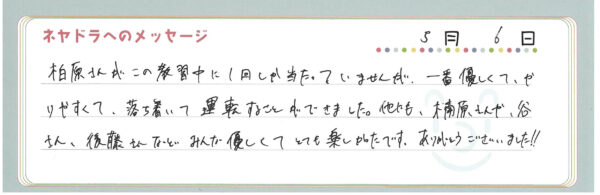 ネヤドラへのメッセージ
5月 6日
柏原さんがこの教習中に1回しか当たっていませんが、一番優しくて、や
りやすくて、落ち着いて運転することができました。他にも、楠原さんや、谷
さん、後藤さんなどみんな優しくてとても楽しかったです。ありがとうございました!!